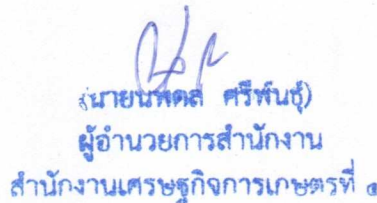 (นายนพดล ศรีพันธุ์)
ผู้อำนวยการสำนักงาน
สำนักงานเศรษฐกิจการเกษตรที่ ๑